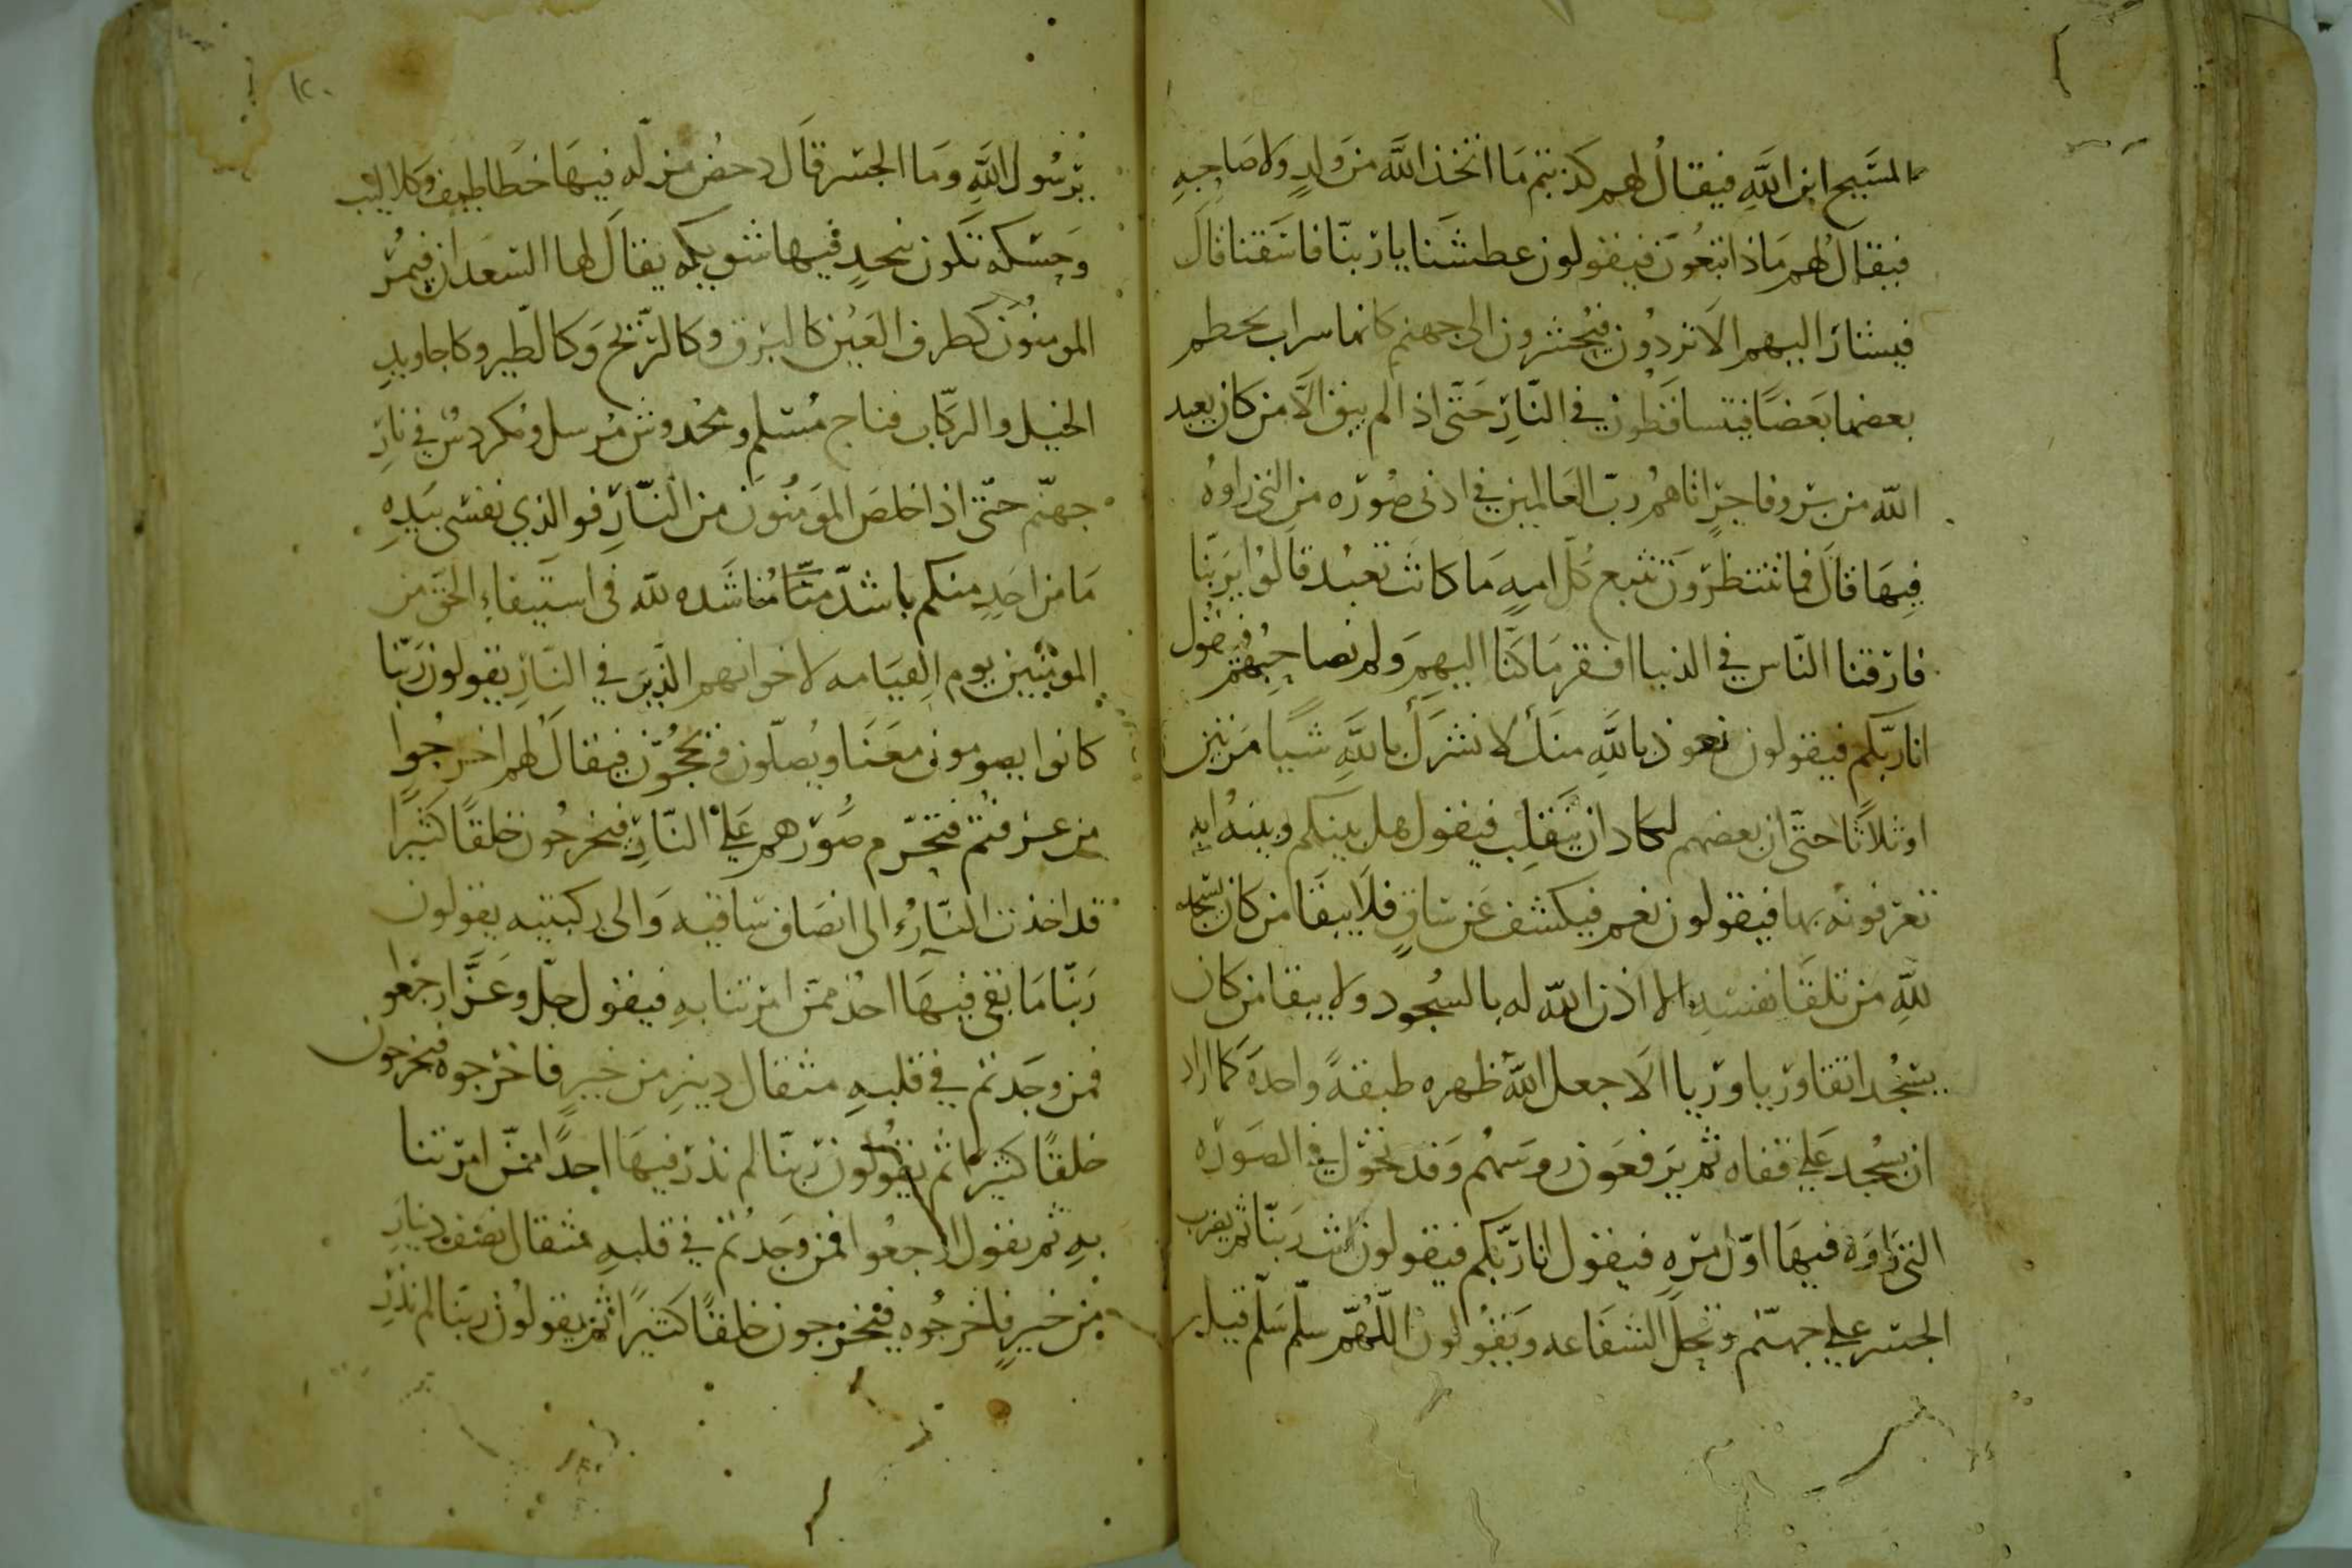 المسَيح ابن اللَّهِ فيقالُ لهم كذبتم مَا اتخذ اللَّه من وَلدٍ وَلا صَاحِبهِ
فيقالُ لهم مَاذا تبغُون فيقولون عطشَنا يا ربنّا فاسَقنا قالَ
فيشار اليهم الَا تردُون فيُحشرون الى جهنم كانها سراب يحطم
بعضها بَعضًا فيتساقَطون في النّارِ حَتّى اذا لم يبق الّا من كان يعبد
اللّه من بَر وفاجرٍ اتاهمُ ربّ العَالمين في ادنى صُوره من التي راوهُ
فِيهَا قالَ فما تنتظرَونَ تتبع كل امهٍ مَا كانت تعبُد قالُوا يَربّنا
فارَقنا النّاس في الدنيا افقر مَا كنّا اليهِم وَلم نصاحِبُهم فيقُول
انا ربّكم فيقولون نعوذ بالله منك لا نشرَك باللَّهِ شيًا مَرتين
اوثلاثًا حتّى ان بعضهم لكادان يَنقلِب فيقول هل بينكم وبينهُ ايه
تعرَفونهُ بها فيقولون نعم فيكشف عَن سَاقٍ فلَا يبقَا من كان يسَجد
للَّهِ من تلقَا نفسَهِ الا اذن اللّه له بالسُجود ولا يبقا من كان
يسَجُد اتقا وريا وريا الَا جعل اللَّه ظهره طبقةً واحدةً كما اراد
ان يسَجُد عَلي قفاه ثم يَرفعَون روسَهُم وَقد تحَوّل في الصَورَه
التي رَاوَه فيهَا اوّل مرّهٍ فيقول انا ربّكم فيقولون انت رَبّنا ثم يضرب
الجسَر علي جهنّم وتحلّ الشفَاعه وَيقُولون اللّهُمّ سلّم سَلّم قيل
يرَسُول اللَّهِ وَمَا الجسَر قالَ دحضُ مزلّه فيهَا خطاطيف وَكلاليب
وَحِسَكه تكون بنجدٍ فيها شويكه يقالَ لها السَعدان فيمُرّ
المومنُون كطرف العَين كالبَرق وكالرّيح وَكالطّير وكاجاويدِ
الخيل والركّاب فناج مُسَلم ومخدوش مُرسل ومكردسٌ في نارِ
جهنّم حتّى اذا خلصَ المَومُنوَن من النّارِ فوالذي نفسَى بيَدِهِ
مَا من احَدٍ منكم باشدّ منّا مُناشَده للّه في اسَتيفاء الحَق من
المومنيين يوم القيَامه لاخوانهم الّذينَ في النّارِ يقولون رَبّنا
كانوا يصومون معَنَا ويُصلّون ويحجُوّن فيقالَ لهم اخرجُوا
من عرَفتم فتحرّم صُورَهم عَلي النّارِ فيخرجُون خلقًا كثيرًا
قد اخذت النّارُ الى انصَاف سَاقيه وَالى ركبتيه يقولون
رَبّنا مَا بقى فيهَا احدٌ ممّن امَرتنا بهِ فيقول جلّ وعَزّ ارجعُوا
فمن وجَدتم في قلبهِ مثقال دينرٍ من خيرٍ فاخرَجوه فيخرجون
خلقًا كثيرًا ثم يقولون رَبنّا لم نذرَ فيهَا احدًا ممّن امرَتنا
بهِ ثم يقول ارجعُوا فمن وجَدتُم في قلبهِ مثقال نصَف دينارِ
من خيرٍ فاخرجُوه فيخرجون خلقًا كثيرًا ثم يقولون ربّنا لم نذرَ